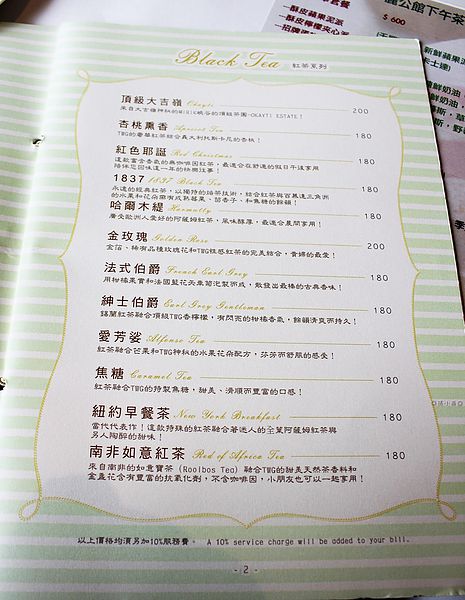 Black Tea 紅茶系列
頂級大吉嶺 Okayti 200
來自大吉嶺神秘的MIRIK峽谷的頂級茶園-OKAYTI ESTATE!
杏桃熏香 Apricot Tea 180
TWG的奢華紅茶綜合義大利托斯卡尼的杏桃!
紅色耶誕 Red Christmas 180
這款富含香氣的無咖啡因紅茶,最適合在舒適的假日午後享用
陪伴您回味這一年的快樂往事!
1837 1837 Black Tea 180
永遠的經典紅茶,以獨特的焙茶技術,結合紅茶與百慕達三角洲
的水果和花朵帶有成熟莓果、茴香子、和焦糖的餘韻!
哈爾木緹 Harmutty 180
廣受歐洲人喜好的阿薩姆紅茶,風味醇厚,最適合晨間享用!
金玫瑰 Golden Rose 200
金箔、稀有品種玫瑰花和TWG性感紅茶的完美結合,貴婦的最愛!
法式伯爵 French Earl Grey 180
用柑橘果實和法國藍花矢車菊泡製而成,散發出最棒的古典香味!
紳士伯爵 Earl Grey Gentleman 180
錫蘭紅茶融合頂級TWG香檸檬,有閃亮的柑橘香氣,餘韻清爽而持久!
愛芳娑 Alfonso Tea 180
紅茶融合芒果和TWG神秘的水果花朵配方,芬芳而舒肌的感受!
焦糖 Caramel Tea 180
紅茶融合TWG的特製焦糖,甜美、滑順而豐富的口感!
紐約早餐茶 New York Breakfast 180
當代代表作!這款特殊的紅茶融合著迷人的全葉阿薩姆紅茶與
另人陶醉的甜味!
南非如意紅茶 Red of Africa Tea 180
來自南非的如意寶茶 (Rooibos Tea) 融合TWG的甜美天然茶香料和
金盞花含有豐富的抗氧化劑,不含咖啡因,小朋友也可以一起享用!
以上價格均須另加10%服務費。 A 10% service charge will be added to your bill.
- 2 -
公館下午茶
$ 600
-酥皮蘋果泥派
-酥皮檸檬夾心派
新鮮蘋果派
卡士達